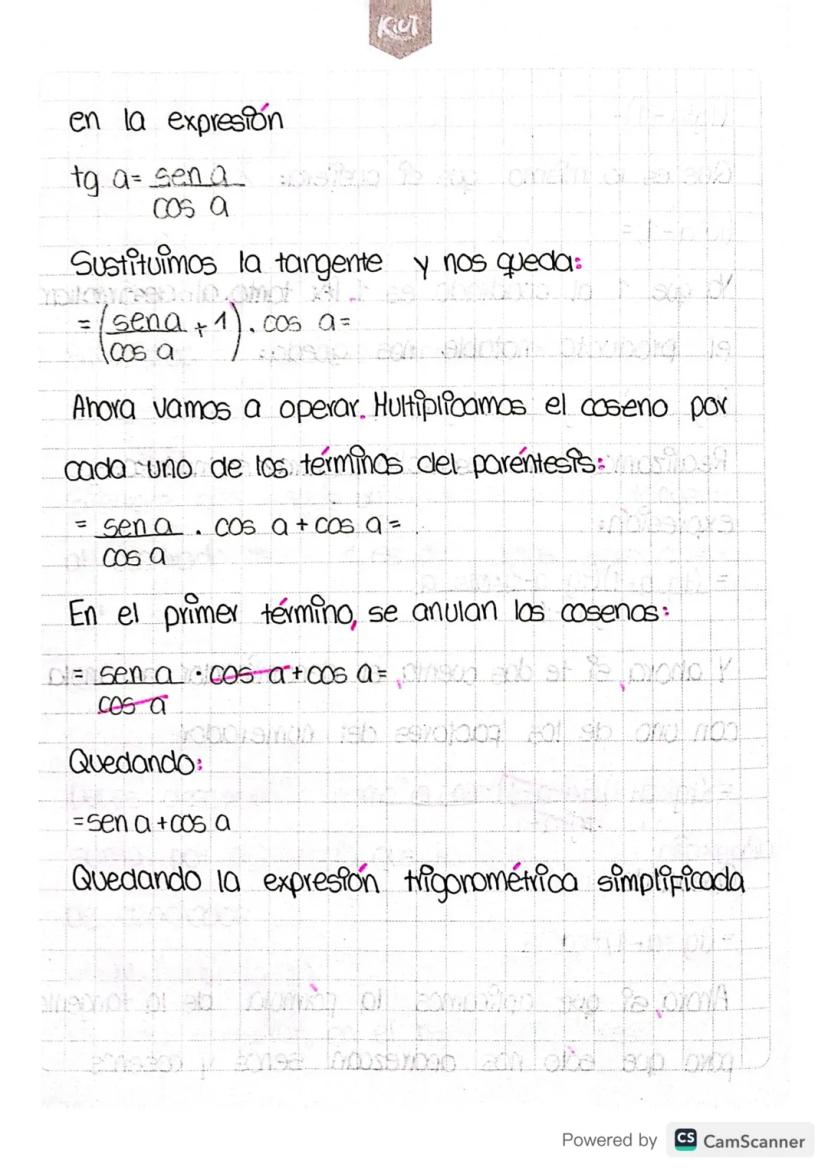 KiUT
en la expresión
tg a= sen a
cos a
Sustituimos la tangente y nos queda:
= (sen a + 1) . cos a=
cos a
Ahora vamos a operar. Multiplicamos el coseno por
cada uno de los términos del paréntesis:
= sen a . cos a + cos a =
cos a
En el primer término, se anulan los cosenos:
= sen a · cos a + cos a =
cos a
Quedando:
=sen a + cos a
Quedando la expresión trigonométrica simplificada
Powered by CS CamScanner